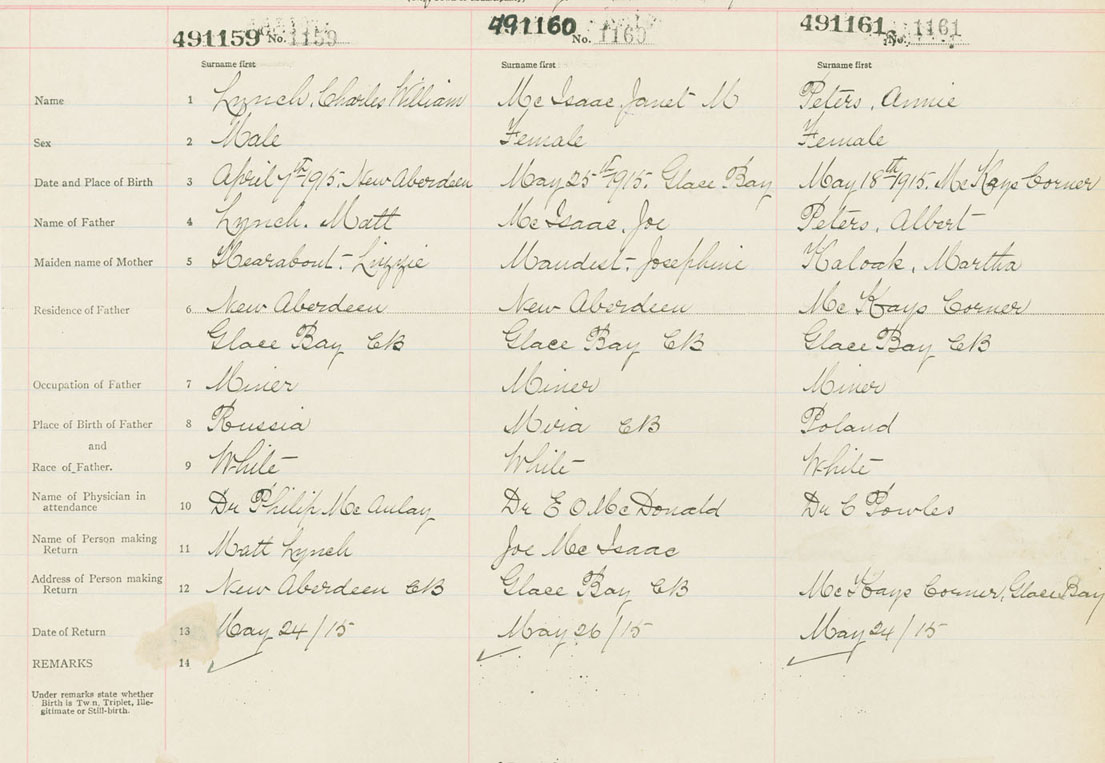 491159 No. 1159 491160 No. 1160 491161 No. 1161
Surname first Surname first Surname first
Name 1 Lynch, Charles William Mc Isaac, Janet M Peters, Annie
Sex 2 Male Female Female
Date and Place of Birth 3 April 7th 1915. New Aberdeen May 25th 1915. Glace Bay May 18th 1915. Mc Kays Corner
Name of Father 4 Lynch. Matt Mc Isaac, Joe Peters, Albert
Maiden name of Mother 5 Hearabout - Lizzie Maudest - Josephine Kaloak, Martha
Residence of Father 6 New Aberdeen New Aberdeen Mc Kays Corner
Glace Bay CB Glace Bay CB Glace Bay CB
Occupation of Father 7 Miner Miner Miner
Place of Birth of Father 8 Russia Mira CB Poland
and
Race of Father. 9 White White White
Name of Physician in
attendance 10 Dr Philip Mc Aulay Dr E O McDonald Dr C Powles
Name of Person making
Return 11 Matt Lynch Joe Mc Isaac
Address of Person making
Return 12 New Aberdeen CB Glace Bay CB Mc Kays Corner, Glace Bay
Date of Return 13 May 24/15 May 26/15 May 24/15
REMARKS 14
Under remarks state whether
Birth is Twn, Triplet, Ille-
gitimate or Still-birth.